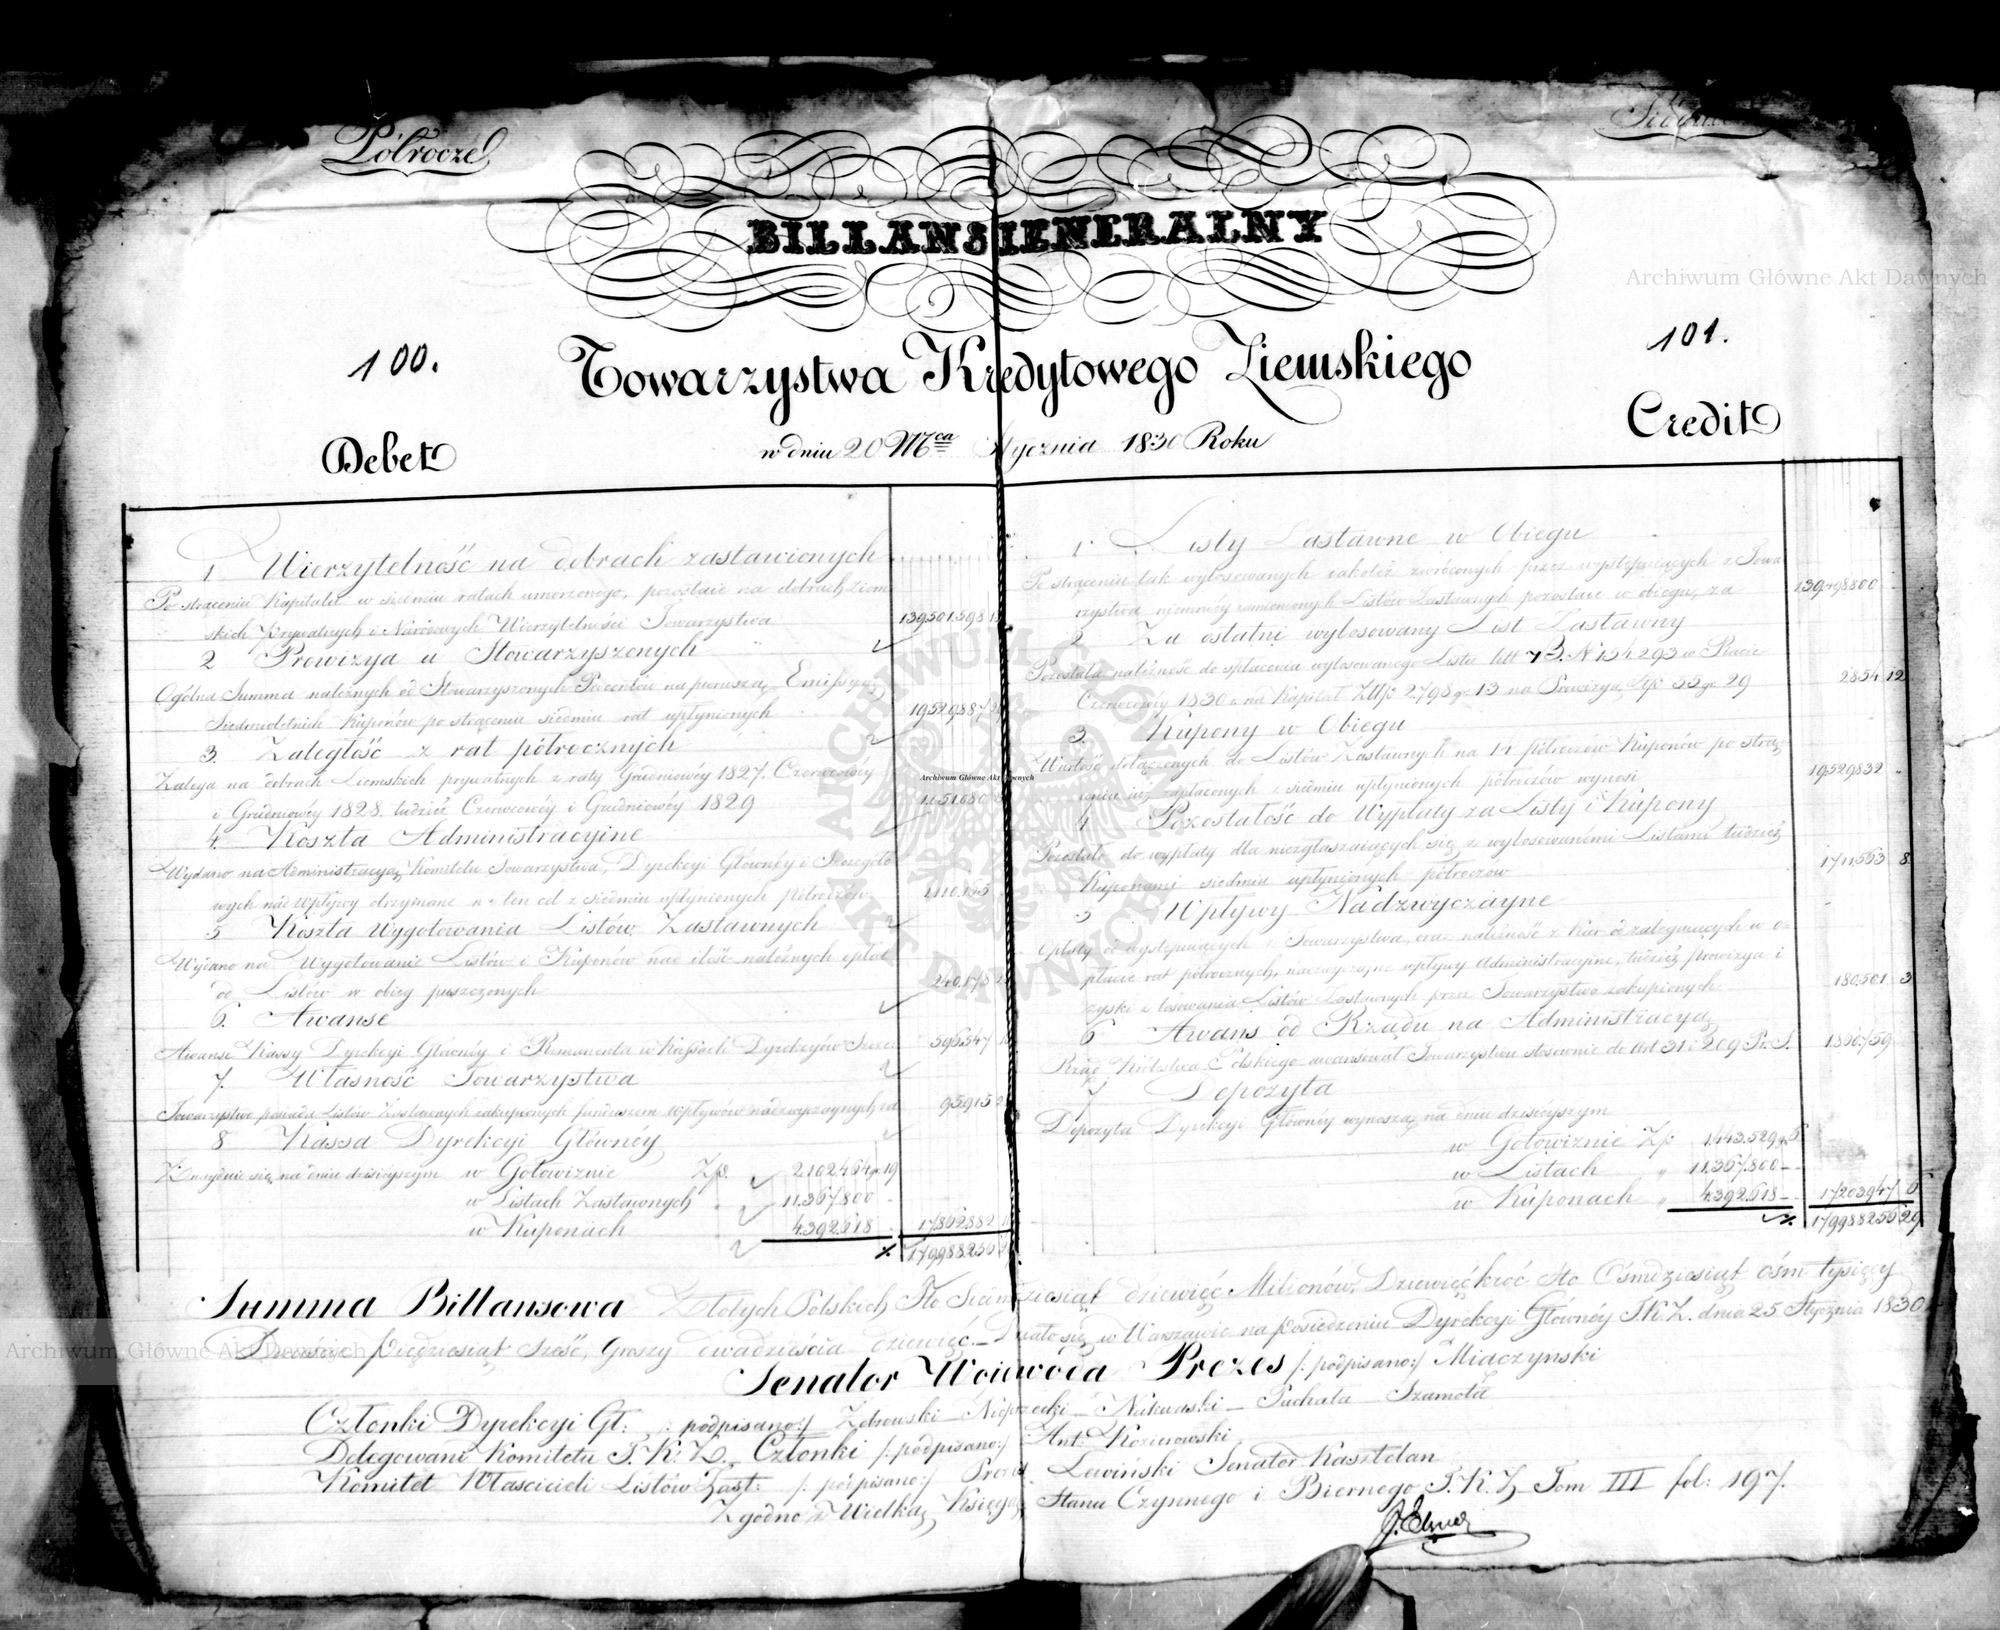 Półrocze
Siódme
BILLANS JENERALNY
100.
101.
Towarzystwa Kredytowego Ziemskiego
Debet
Credit
w dniu 20 Mca Stycznia 1830 Roku
1 Wierzytelność na dobrach zastawionych
Po strąceniu Kapitału w siedmiu ratach umorzonego, pozostaie na dobrach Ziem-
skich Prywatnych i Narodowych Wierzytelności Towarzystwa 139.501.598
2 Prowizya u Stowarzyszonych
Ogólna Summa należnych od Stowarzyszonych Procentów na pierwszą Emissyą
Siedmioletnich Kuponów po strąceniu siedmiu rat upłynionych
3. Zaległość z rat półrocznych
Zalega na dobrach Ziemskich prywatnych z raty Grudniowéy 1827. Czerwcowéy
i Grudniowéy 1828. tudzież Czerwcowéy i Grudniowéy 1829
4. Koszta Administracyine
Wydano na Administracyą Komitetu Towarzystwa, Dyrekcyi Głównéy i Szczegóło-
wych nad wpływy otrzymane na ten cel z siedmiu upłynionych Półroczów
5 Koszta Wygotowania Listów Zastawnych
Wydano na Wygotowanie Listów i Kuponów nad ilość należnych opłat
od Listów w obieg puszczonych
6. Awanse
Awanse Kassy Dyrekcyi Głównéy i Remanenta w Kassach Dyrekcyów Szcze:
7. Własność Towarzystwa
Towarzystwo posiada Listów Zastawnych zakupionych funduszem wpływów nadzwyczaynych za 95.915
8 Kassa Dyrekcyi Głównéy
Znayduie się na dniu dzisieyszym w Gotowiznie Zp. 2.102.464 gr. 19
w Listach Zastawnych 11.367.800
w Kuponach 4.392.618 17.862.882
179988256
1 Listy Zastawne w Obiegu
Po strąceniu tak wylosowanych iakoteż zwróconych przez występuiących z Towa-
rzystwa niemniéy zamienionych Listów Zastawnych pozostaie w obiegu, za
2 Za ostatni wylosowany List Zastawny
Pozostała należność do spłacenia wylosowanego Listu litt B. N 154293 w Racie 2854 12
Czerwcowéy 1830 r. na Kapitał Złp: 2798 gr 13 na Prowizyą Złp: 55 gr 29
3. Kupony w Obiegu
Wartość dołączonych do Listów Zastawnych na 14 półroczów Kuponów po strą- 19.529.832
ceniu iuż zapłaconych z siedmiu upłynionych półroczów wynosi
4 Pozostałość do Wypłaty za Listy i Kupony
Pozostało do wypłaty dla niezgłaszaiących się z wylosowanemi Listami tudzież 1.711.563 8
Kuponami siedmiu upłynionych półroczów
5 Wpływy Nadzwyczayne
Opłaty od występuiących z Towarzystwa, oraz należność z Kar od zalegaiących w o-
płacie rat półrocznych, nadzwyczayne wpływy Administracyine, tudzież prowizya i 180.501 3
zyski z losowania Listów Zastawnych przez Towarzystwo zakupionych
6 Awans od Rządu na Administracyą
Rząd Królestwa Polskiego awansował Towarzystwu stosownie do Art 31 i 209 Pr. S. 1.860.759
7 Depozyta
Depozyta Dyrekcyi Głównéy wynoszą na dniu dzisieyszym
w Gotowiznie Zp: 1.443.529 gr. 6
w Listach 11.367.800
w Kuponach 4.392.618 17203947 6
179988256 29
Summa Billansowa Złotych Polskich Sto Siedmdziesiąt dziewięć Milionów, Dziewięćkroć Sto Ośmdziesiąt ośm tysięcy
Dwieście Pięćdziesiąt Sześć, Groszy dwadzieścia dziewięć. Działo się w Warszawie na posiedzeniu Dyrekcyi Głównéy T.K.Z. dnia 25 Stycznia 1830
Senator Woiewoda Prezes /:podpisano:/ Miączyński
Członki Dyrekcyi Gł: /:podpisano:/ Nakwaski Puchała Szamota
Delegowani Komitetu T.K.Z. Członki /:podpisano:/ Ant: Kozierowski
Komitet Właścicieli Listów Zast: /:podpisano:/ Prezes Lewiński Senator Kasztelan
Zgodno z Wielką Księgą Stanu Czynnego i Biernego T.K.Z. Tom III fol: 197.
Archiwum Główne Akt Dawnych
Archiwum Główne Akt Dawnych
Archiwum Główne Akt Dawnych
ARCHIWUM GŁÓWNE AKT DAWNYCH